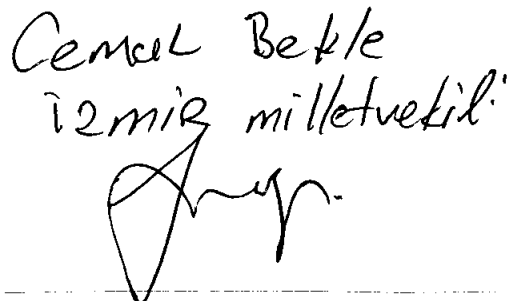 Cemal Bekle
İzmir milletvekili